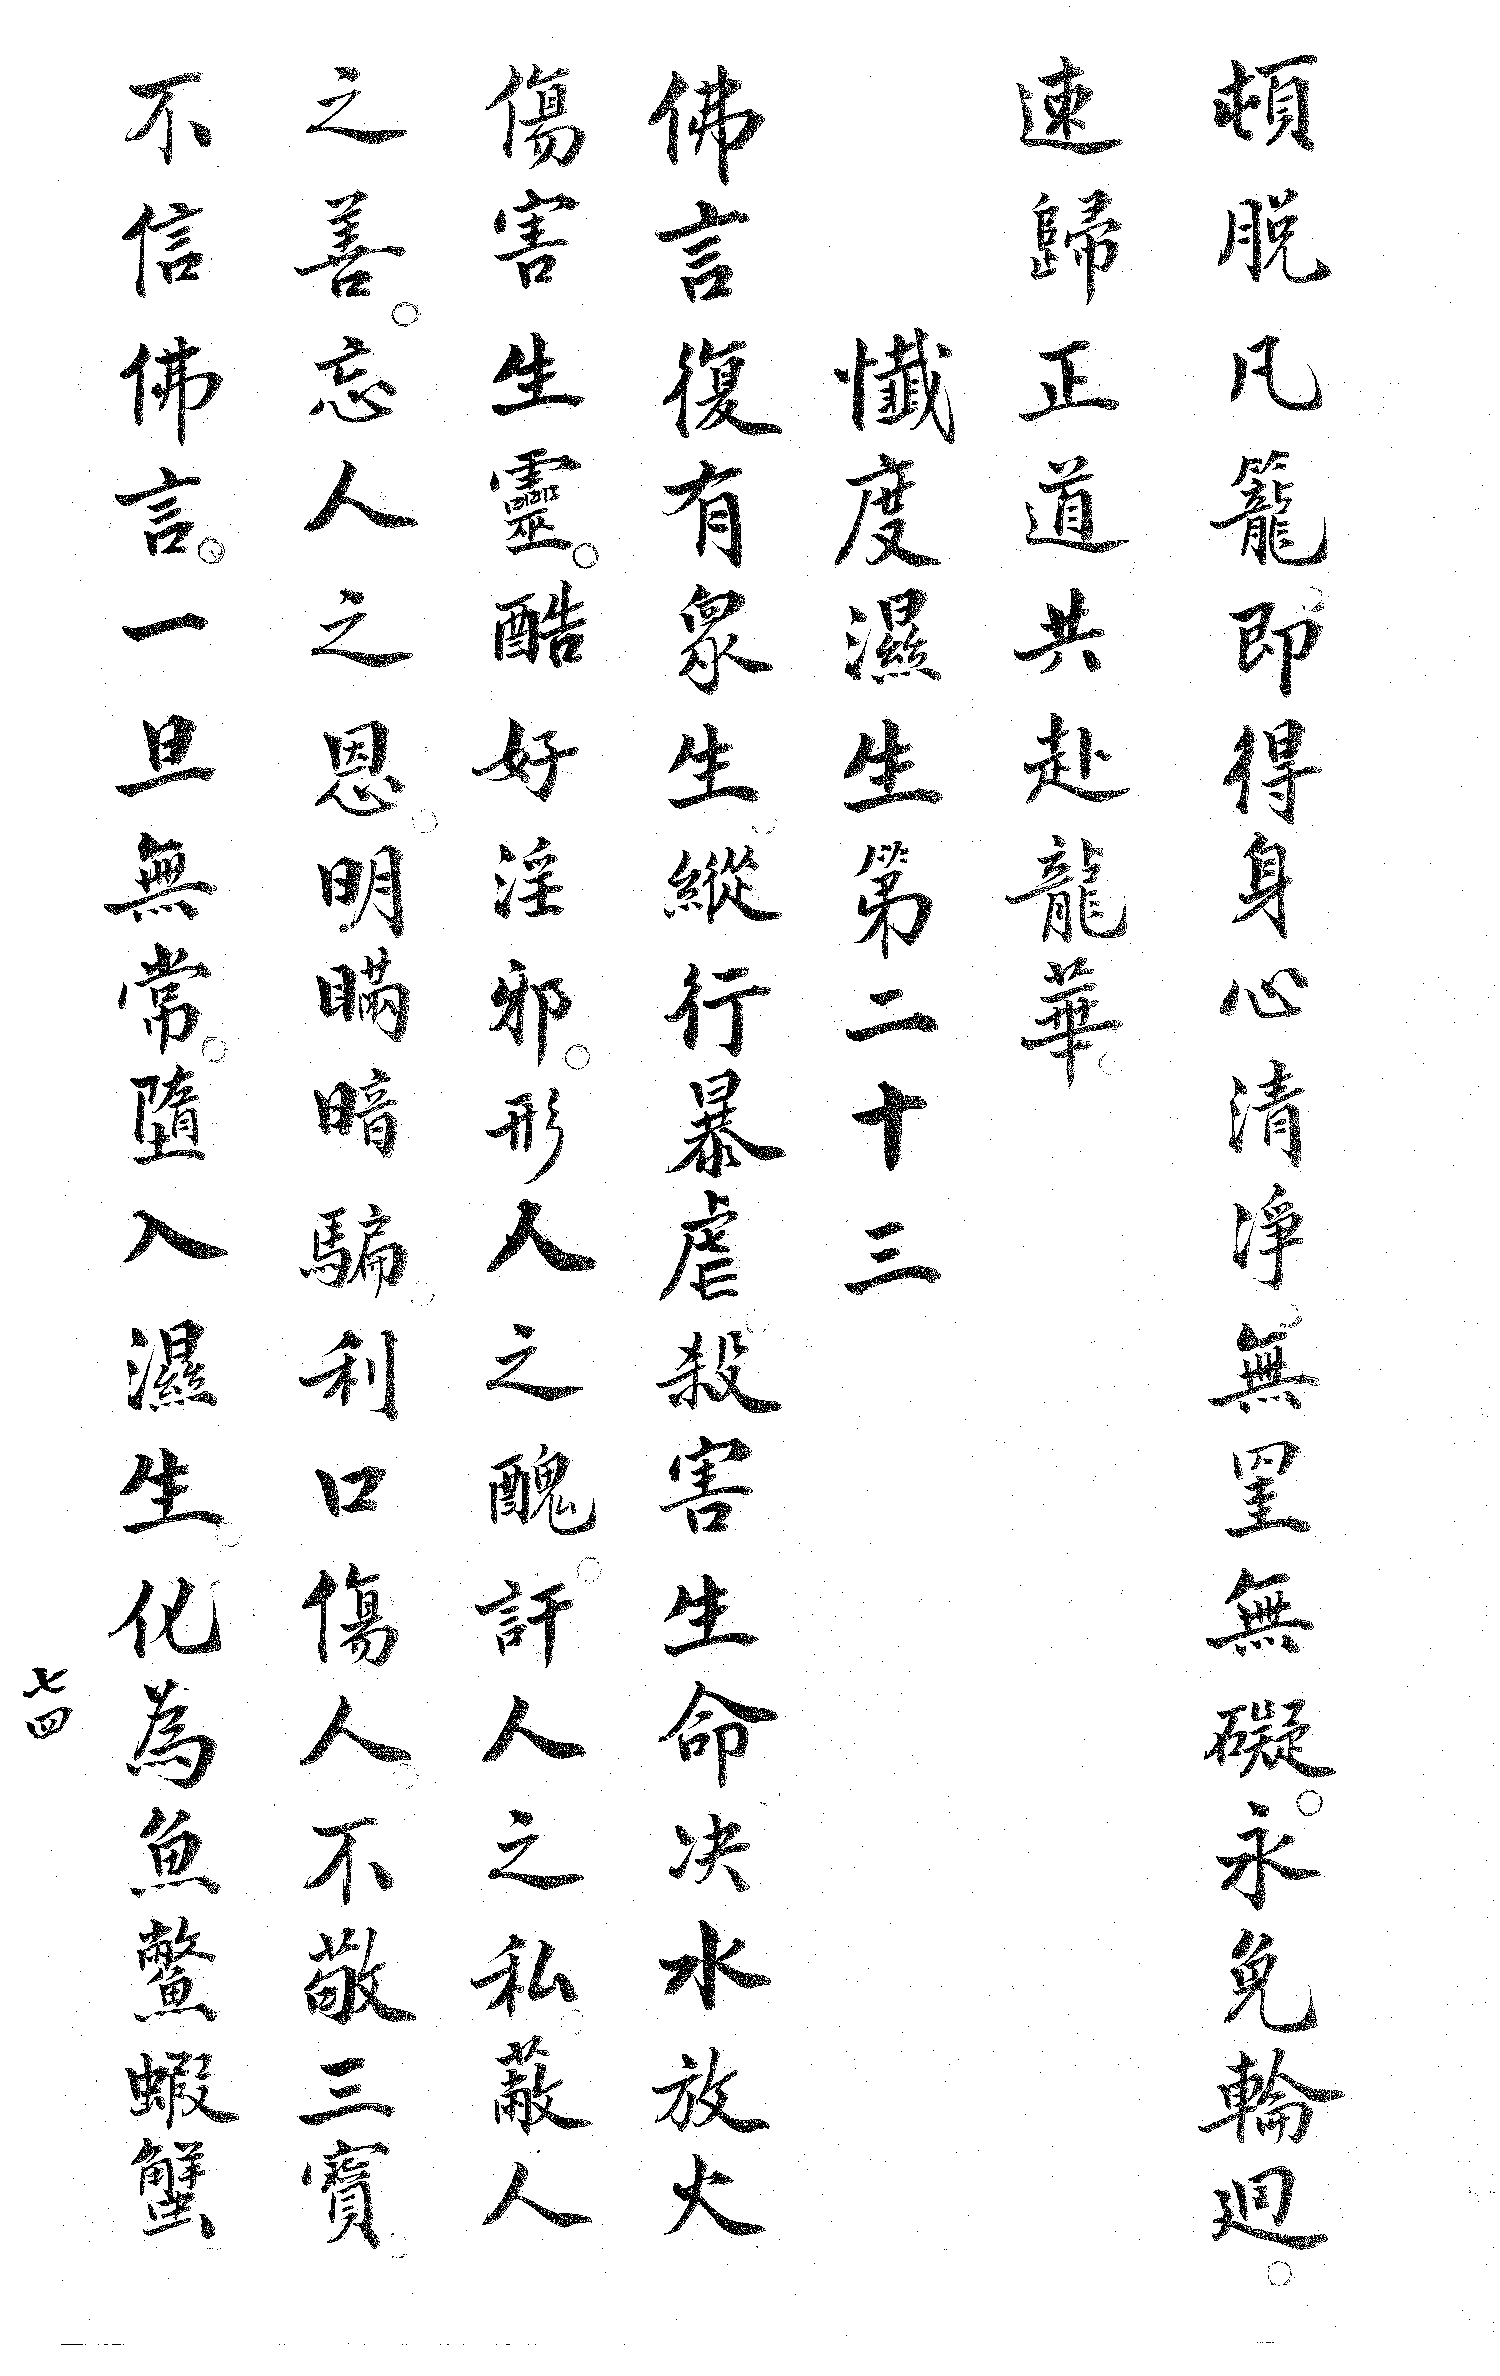 頓脫凡籠。即得身心清淨。無罣無礙。永免輪迴。
速歸正道共赴龍華。
懺度濕生第二十三
佛言復有眾生。縱行暴虐。殺害生命決水放火
傷害生靈。酷好淫邪。形人之醜。訐人之私。蔽人
之善。忘人之恩。明瞞暗騙。利口傷人。不敬三寶。
不信佛言。一旦無常。墮入濕生。化為魚鱉蝦蟹
七四